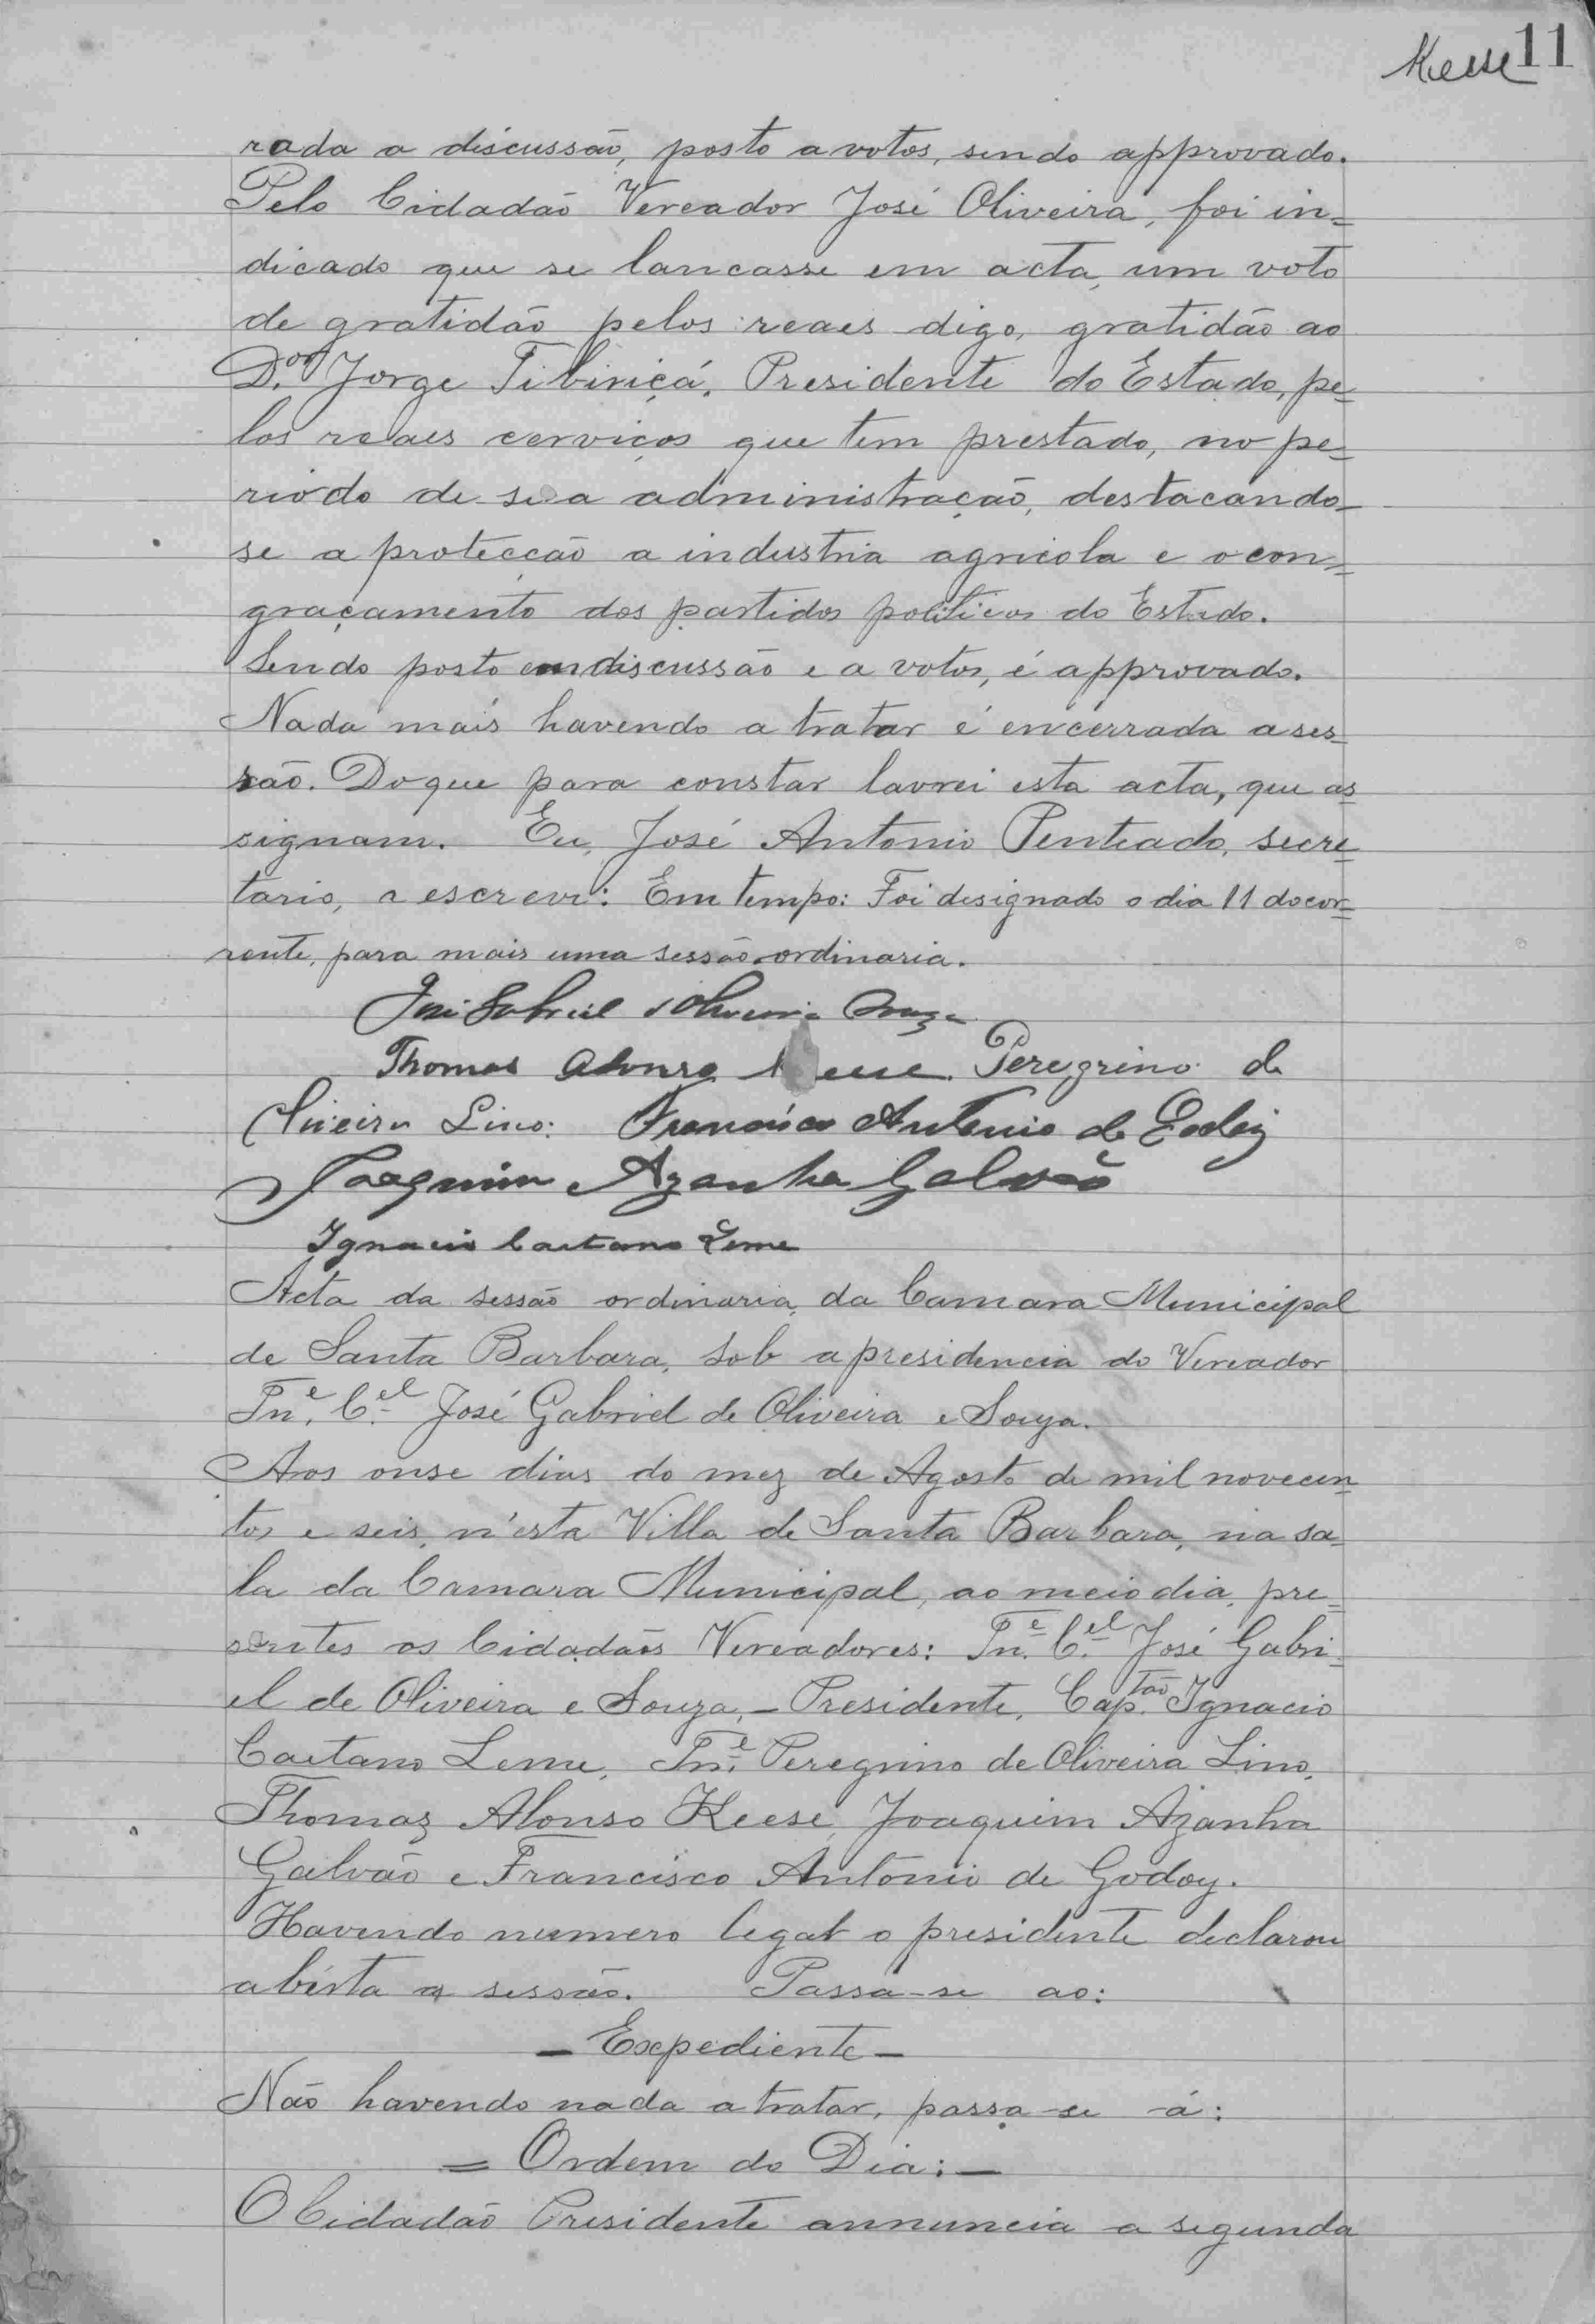 Keese 11
rada a discussão, posto a votos, sendo approvado.
Pelo Cidadão Vereador José Oliveira, foi in=
dicado que se lancasse em acta, um voto
de gratidão pelos reaes digo, gratidão ao
D.or Jorge Tibiriçá, Presidente do Estado, pe=
los reaes cerviços que tem prestado, no pe=
riodo de sua administração, destacando-
se a protecção a industria agricola e o con=
graçamento dos partidos politicos do Estado.
Sendo posto em discussão e a votos, é approvado.
Nada mais havendo a tratar é encerrada a ses-
são. Do que para constar lavrei esta acta, que as
signam. Eu, José Antonio Penteado, secre
tario, a escrevi: Em tempo: Foi designado o dia 11 do cor=
rente, para mais uma sessão ordinaria.
José Gabriel d'Oliveira Souza
Thomas Alonso Keese. Peregrino de
Oliveira Lino. Francisco Antonio de Godoy
Joaquim Azanha Galvão
Ignacio Caetano Leme
Acta da sessão ordinaria, da Camara Municipal
de Santa Barbara, sob a presidencia do Vereador
Tn.e C.el José Gabriel de Oliveira e Souza.
Aos onse dias do mez de Agosto de mil novecen
tos e seis, n'esta Villa de Santa Barbara, na sa-
la da Camara Municipal, ao meio dia, pre=
sentes os Cidadãos Vereadores: Tn.e C.el José Gabri-
el de Oliveira e Souza, - Presidente, Cap.tão Ignacio
Caetano Leme, Tn.e Peregrino de Oliveira Lino,
Thomaz Alonso Keese, Joaquim Azanha
Galvão e Francisco Antonio de Godoy.
Havendo numero legal o presidente declarou
abérta a sessão. Passa-se ao:
- Expediente -
Não havendo nada a tratar, passa-se -á:
= Ordem do Dia: -
O Cidadão Presidente annuncia a segunda